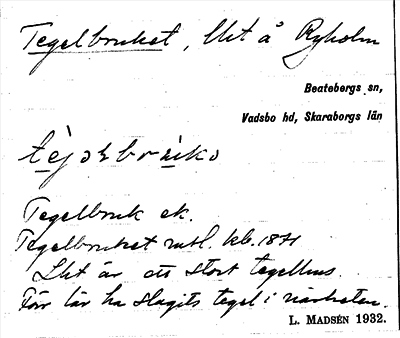 Tegelbruket, Lht å Ryholm
Beatebergs sn,
Vadsbo hd, Skaraborgs län
Tegelbruk ek.
Tegelbruket mtl. kb. 1871
Lht är ett stort tegelhus.
Förr lär ha slagits tegel i närheten.
L. MADSÉN 1932.